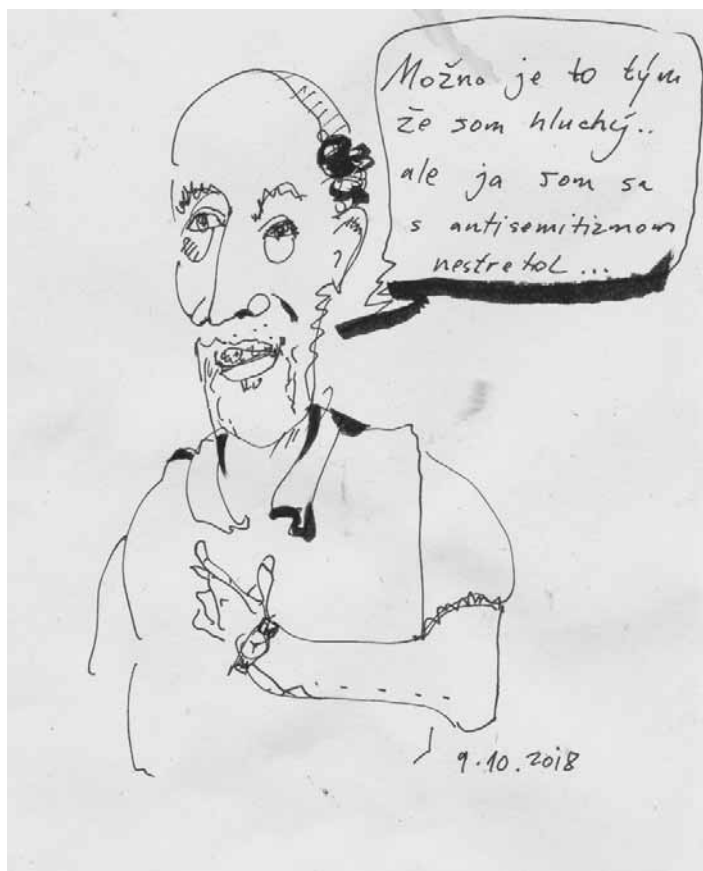 Možno je to tým
že som hluchý..
ale ja som sa
s antisemitizmom
nestretol...
9.10.2018